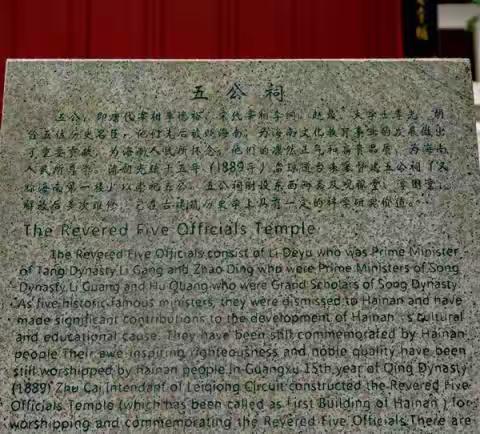 五公祠
五公,即唐代宰相李德裕,宋代宰相李纲、赵鼎、大学士李光、胡
铨五位历史名臣,他们先后被贬海南,为海南文化教育事业的发展做出
了重要贡献,为海南人民所怀念。他们的凛然正气和高贵品质,为海南
人民所尊崇。清朝光绪十五年(1889年)雷琼道台朱采修建五公祠(又
称海南第一楼)以祭祀五公。五公祠附设东西两斋及观稼堂、学圃堂,
解放后多次维修,它在古建筑历史学上具有一定的科学研究价值。
The Revered Five Officials Temple
The Revered Five Officials consist of Li Deyu who was Prime Minister
of Tang Dynasty,Li Gang and Zhao Ding who were Prime Ministers of Song
Dynasty,Li Guang and Hu Quang who were Grand Scholars of Song Dynasty.
As five historic famous ministers, they were dismissed to Hainan and have
made significant contributions to the development of Hainan's cultural
and educational cause. They have been still commemorated by Hainan
people.Their awe-inspiring righteousness and noble quality have been
still worshipped by Hainan people.In Guangxu 15th year of Qing Dynasty
(1889) Zhu Cai,Intendant of Leiqiong Circuit constructed the Revered Five
Officials Temple (which has been called as First Building of Hainan ) for
worshipping and commemorating the Revered Five Officials.There are